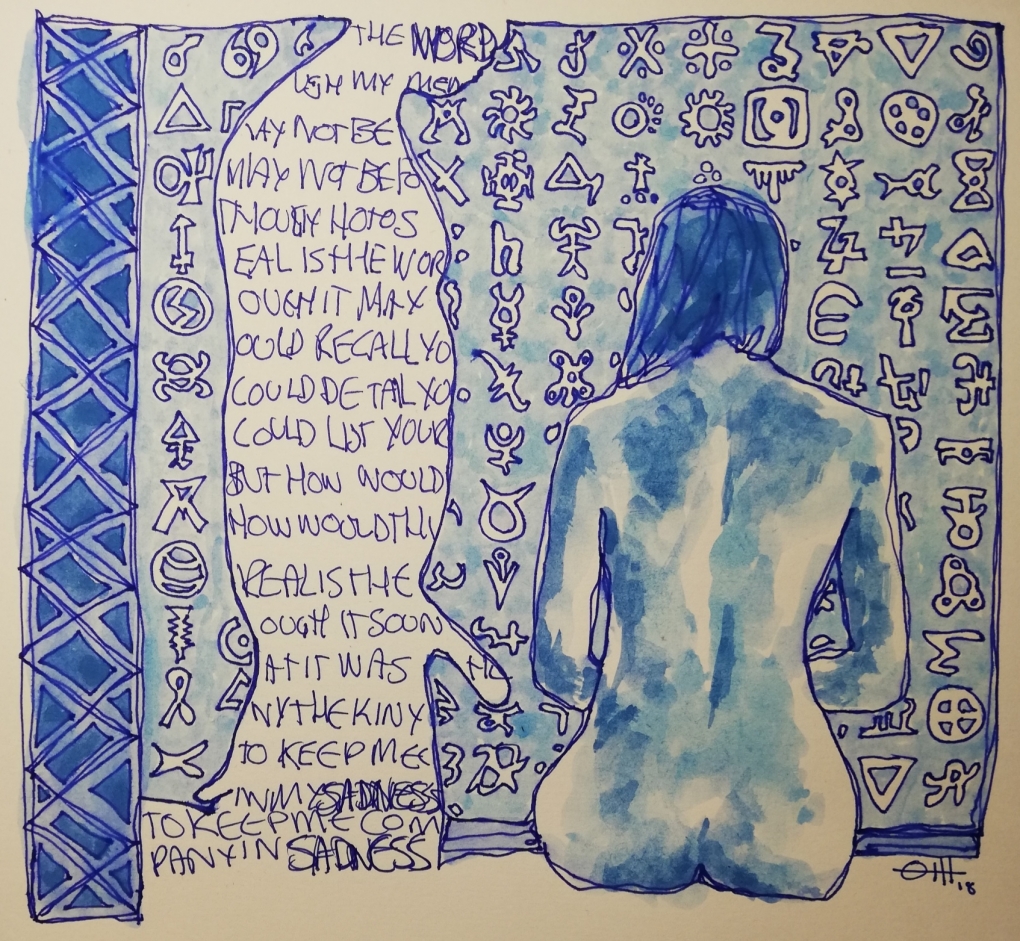 THE WORD
MY MEM
AY NOT BE
MAY NOT BE FO
EAL IS THE WOR
OUGH IT MAY
OULD RECALL YO
COULD DETAIL YO
COULD LIST YOUR
BUT HOW WOULD
HOW WOULD
REAL IS THE
OUGH IT SOUN
AT IT WAS
NY THE KINY
TO KEEP ME
IN MY SADNESS
TO KEEP ME COM
PANY IN SADNESS